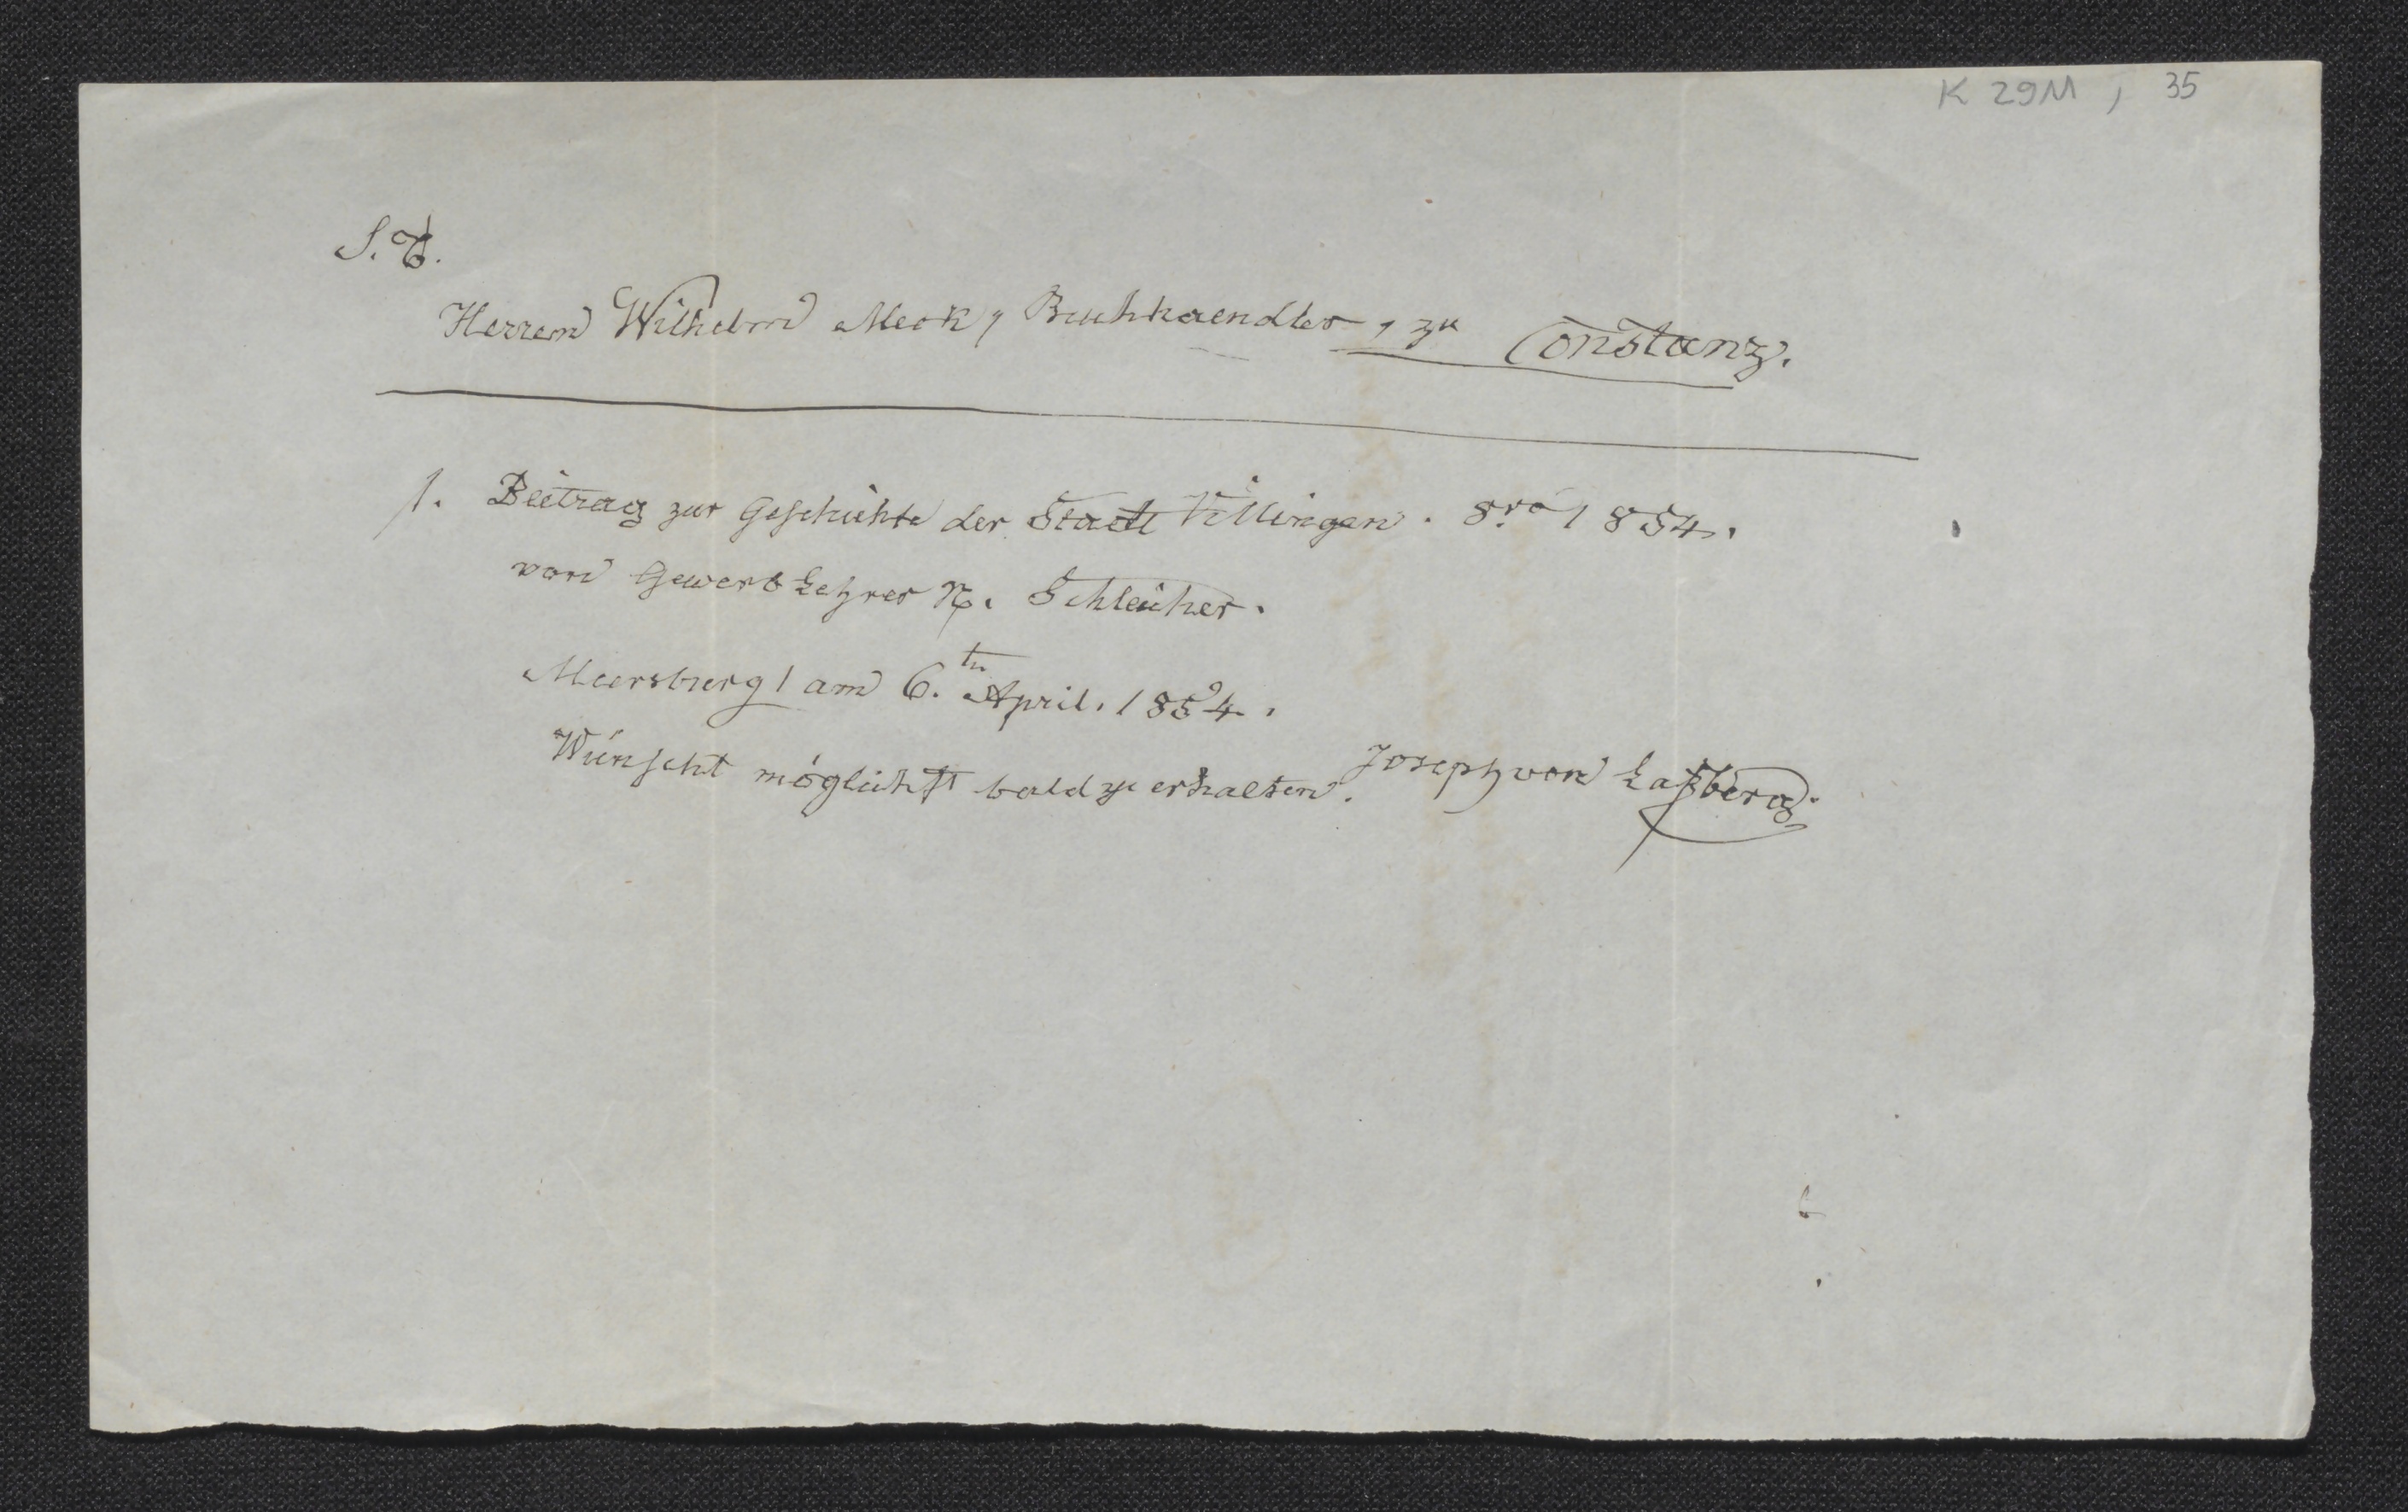 K 29M, 35
S. T.
Herren Wilhelm Meck, Buchhaendler, zu Constanz.
1. Beitrag zur Geschichte der Stadt Villingen. 8vo 1854.
von Gewerb Lehrer N. Schleicher.
Meersburg / am 6. tn April. 1854.
Wünscht möglichst bald zu erhalten. Joseph von Laßberg.